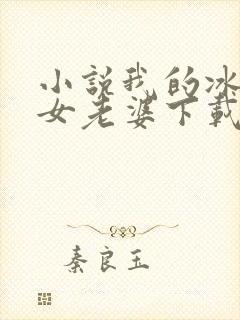 小説我的冰
女老婆下載
秦良玉